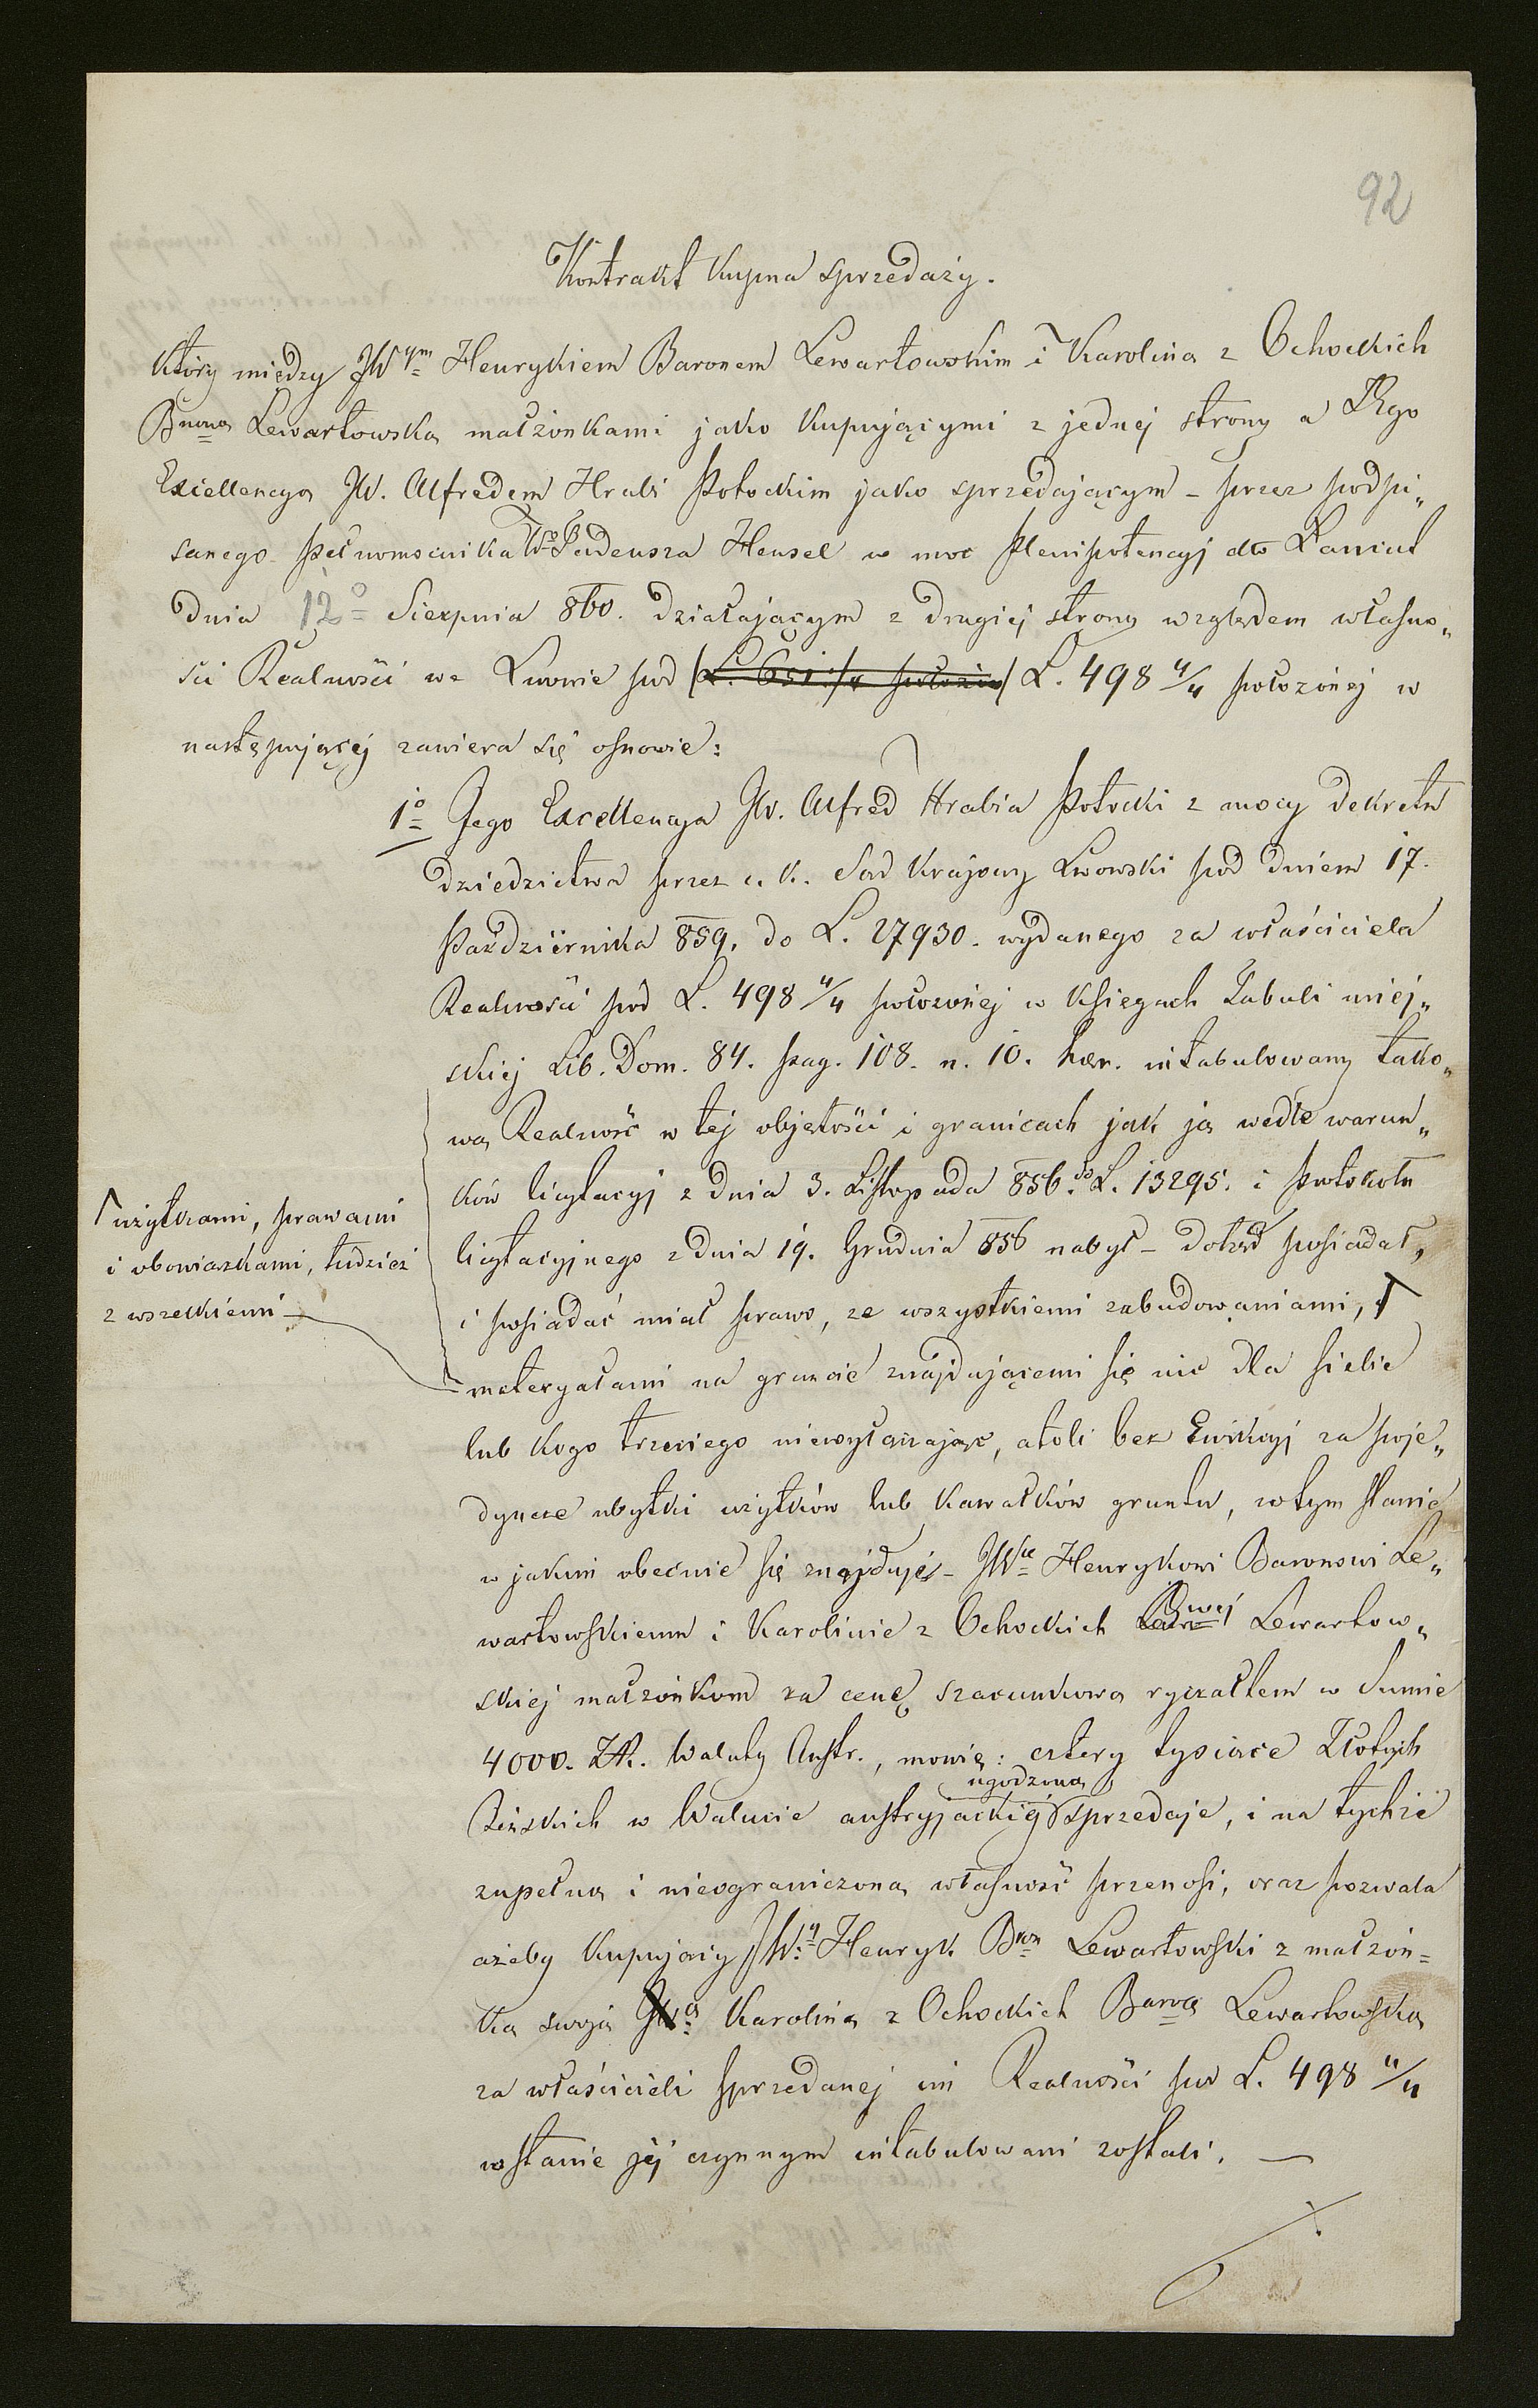 92
Kontrakt Kupna sprzedaży.
Który między JW ym Henrykiem Baronem Lewartowskim i Karoliną z Ochockich
Bnową Lewartowską małżonkami jako Kupującymi z jednej strony a Jego
Excellencyą JW. Alfredem Hrabi Potockim jako sprzedającym – przez podpi„
sanego pełnomocnika Wgo Tadeusza Hensel w moc Plenipotencyj dto Łańcut
dnia 12o Sierpnia 860. działającym z drugiej strony względem własno„
ści Realności we Lwowie pod L. 498 4/4 położonej w
następującej zawiera się osnowie:
1o Jego Excellencya JW. Alfred Hrabia Potocki z mocy dekretu
dziedzictwa przez c. k. Sąd Krajowy Lwowski pod dniem 17.
Października 859. do L. 27930. wydanego za właściciela
Realności pod L. 498 4/4 położonej w Księgach Tabuli miej„
skiej Lib. Dom. 84. pag. 108. n. 10. haer. intabulowany tako„
wą Realność w tej objętości i granicach jak ją wedle warun„
ków licytacyj z dnia 3. Listopada 856. do L. 13295. i protokołu
licytacyjnego z dnia 19. Grudnia 856 nabył – dotąd posiadał,
i posiadać miał prawo, ze wszystkiemi zabudowaniami,
użytkami, prawami
i obowiązkami, tudzież
z wszelkiemi
materyałami na gruncie znajdującemi się nic dla siebie
lub kogo trzeciego niewyłączając, atoli bez Ewikcyj za poje„
dyncze ubytki użytków lub Kawałków gruntu, w tym stanie
w jakim obecnie się znajduje – JWu Henrykowi Baronowi Le„
wartowskiemu i Karolinie z Ochockich Lewartow„
skiej małżonkom za cenę szacunkową ryczałtem w Sumie
4000. ZR. Waluty Austr., mowię: cztery tysiące Złotych
ugodzoną
Reńskich w Walucie austryjackiej sprzedaje, i na tychże
zupełną i nieograniczoną własność przenosi, oraz pozwala
ażeby Kupujący JW.y Henryk Bron Lewartowski z małżon=
ką swoją Karoliną z Ochockich Barową Lewartowską
za właścicieli sprzedanej im Realności pod L. 498 4/4
w stanie jej czynnym intabulowani zostali. —